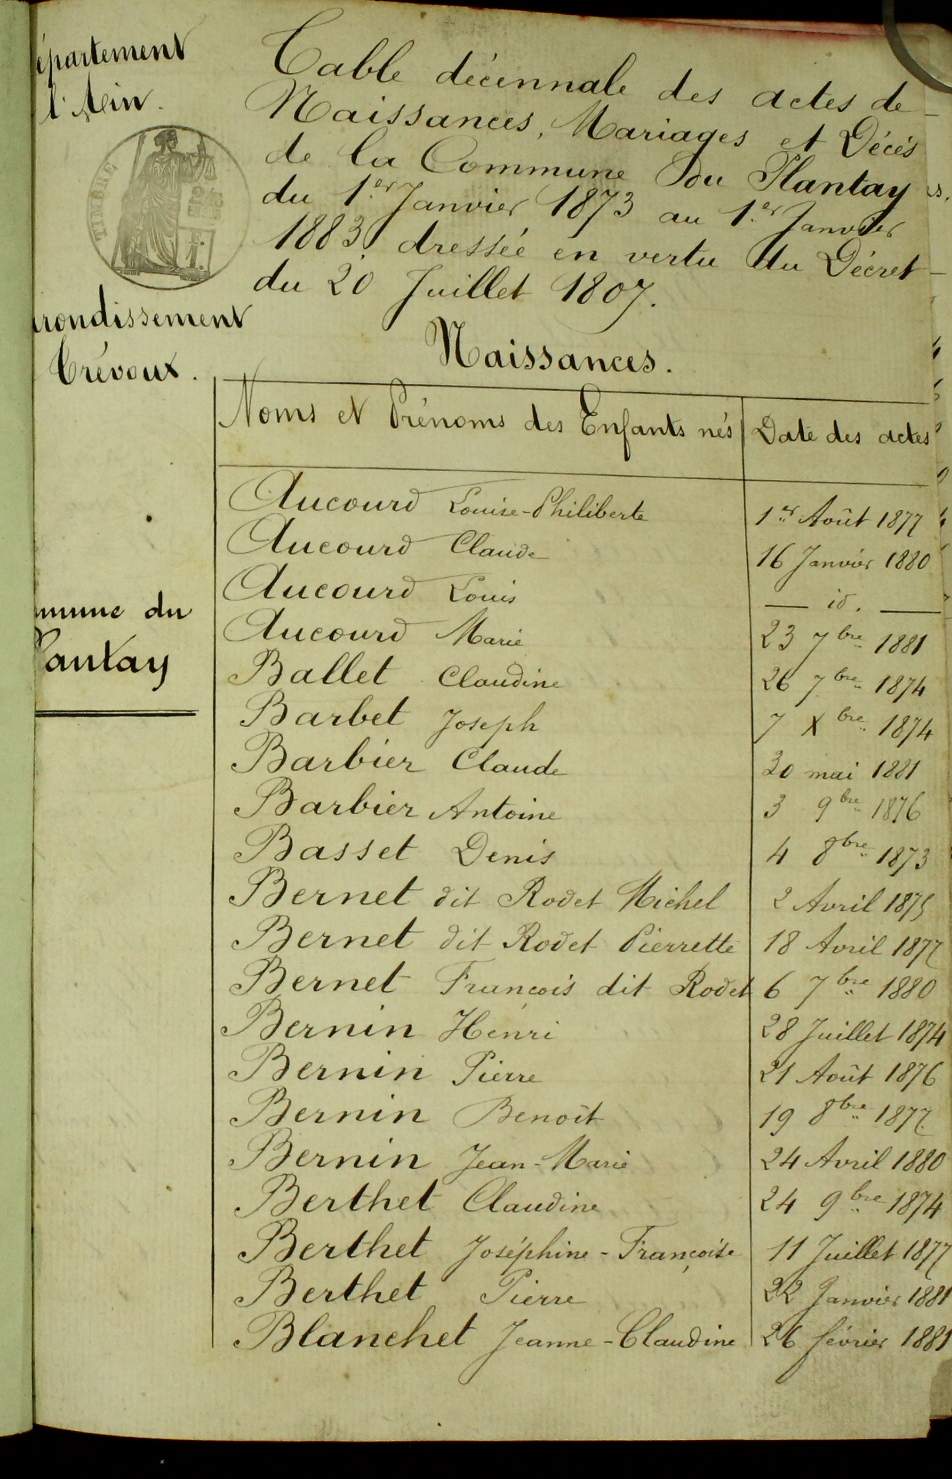 épartement
l'Ain.
TIMBRE
rrondissement
Trévoux.
mmune du
Plantay
Table décennale des actes de
Naissances, Mariages et Décès
de la Commune du Plantay
du 1er Janvier 1873 au 1er Janvier
1883, dressée en vertu du Décret
du 20 Juillet 1807.
Naissances.
Noms et Prénoms des Enfants nés | Date des actes
Aucourd Louise-Philiberte | 1er Août 1877
Aucourd Claude | 16 Janvier 1880
Aucourd Louis | — id. —
Aucourd Marie | 23 7bre 1881
Ballet Claudine | 26 7bre 1874
Barbet Joseph | 7 Xbre 1874
Barbier Claude | 30 mai 1881
Barbier Antoine | 3 9bre 1876
Basset Denis | 4 8bre 1873
Bernet dit Rodet Michel | 2 Avril 1875
Bernet dit Rodet Pierrette | 18 Avril 1877
Bernet François dit Rodet | 6 7bre 1880
Bernin Henri | 28 Juillet 1874
Bernin Pierre | 21 Août 1876
Bernin Benoît | 19 8bre 1877
Bernin Jean-Marie | 24 Avril 1880
Berthet Claudine | 24 9bre 1874
Berthet Joséphine-Françoise | 11 Juillet 1877
Berthet Pierre | 22 Janvier 1881
Blanchet Jeanne-Claudine | 26 février 1881